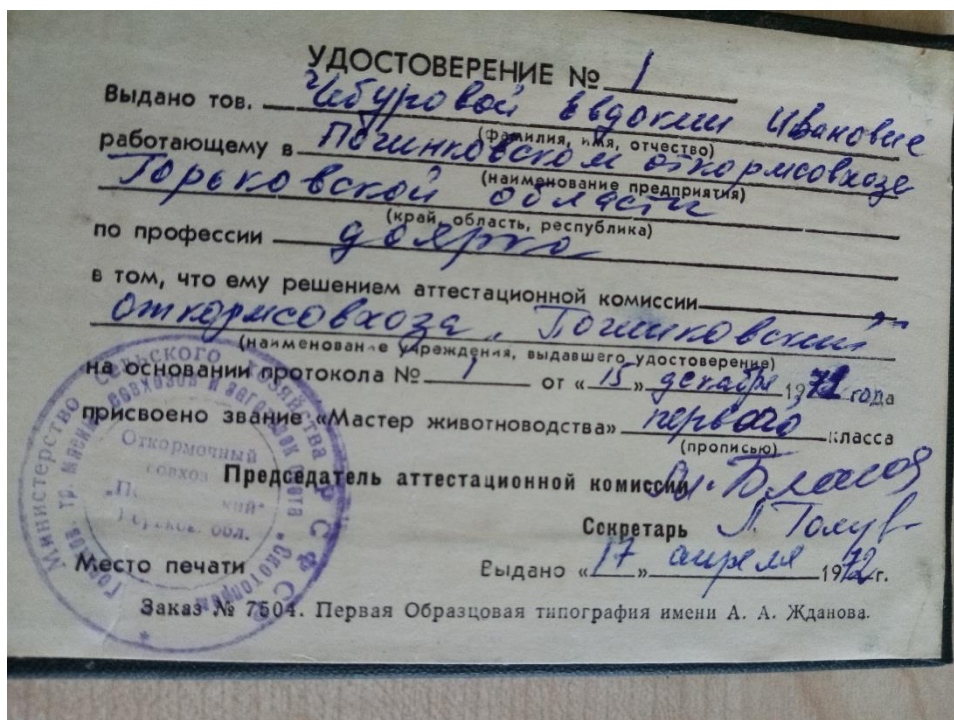 УДОСТОВЕРЕНИЕ № 1
Выдано тов. Чебуровой Евдокии Ивановне
(фамилия, имя, отчество)
работающему в Починковском откормсовхозе
(наименование предприятия)
Горьковской области
(край, область, республика)
по профессии доярка
в том, что ему решением аттестационной комиссии
откормсовхоза "Починковский"
(наименование учреждения, выдавшего удостоверение)
на основании протокола № 1 от «15» декабря 1971 года
присвоено звание «Мастер животноводства» первого класса
(прописью)
Председатель аттестационной комиссии
Секретарь
Место печати Выдано «17» апреля 1972 г.
Заказ № 7504. Первая Образцовая типография имени А. А. Жданова.
Министерство сельского хозяйства РСФСР
Откормочный
совхоз
обл.